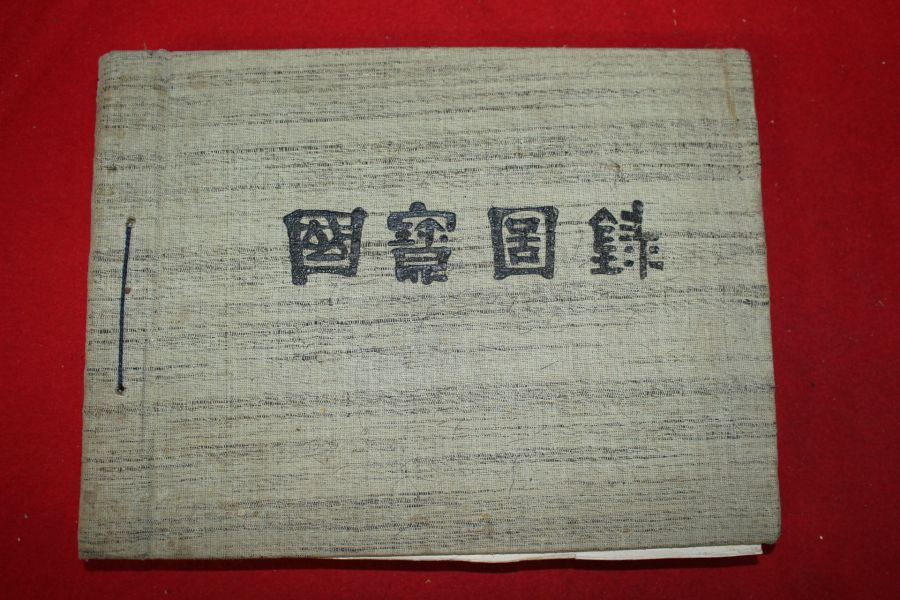 國寶圖錄